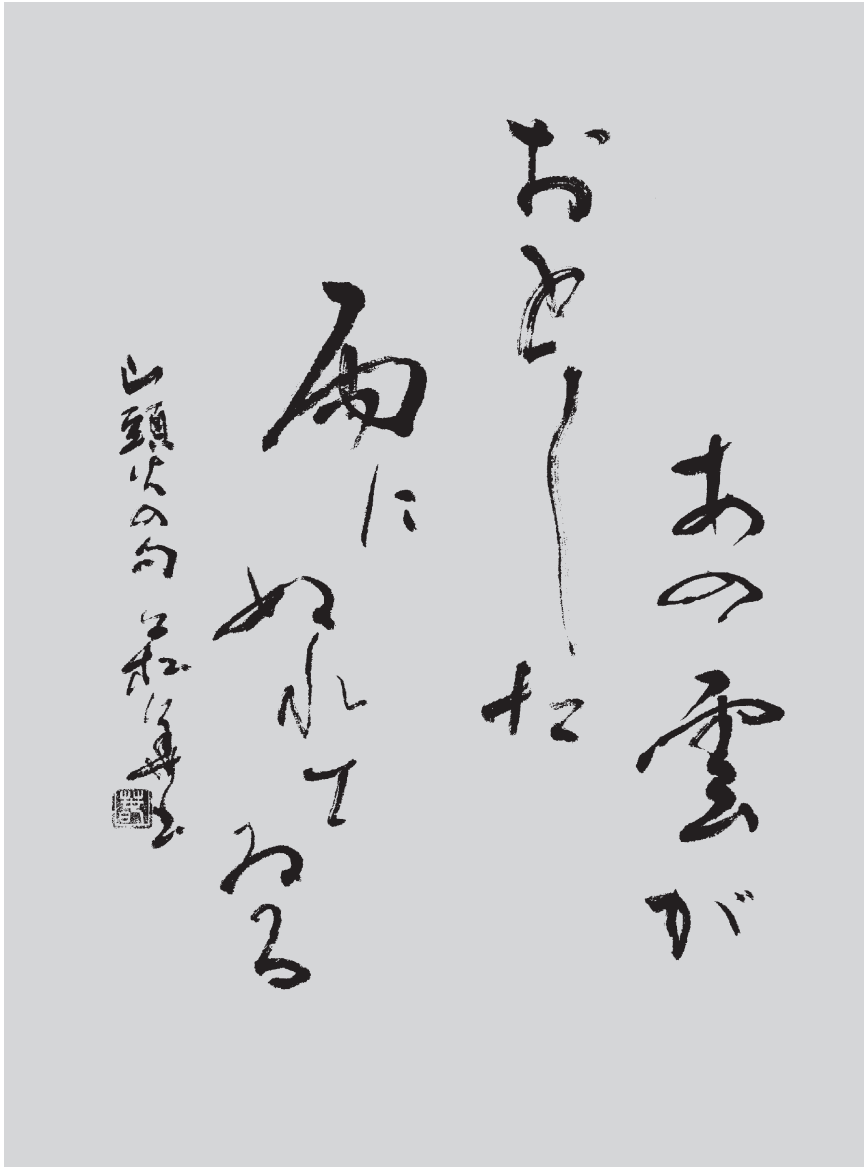 あの雲が
おとした
雨に
ぬれてゐる
山頭火の句